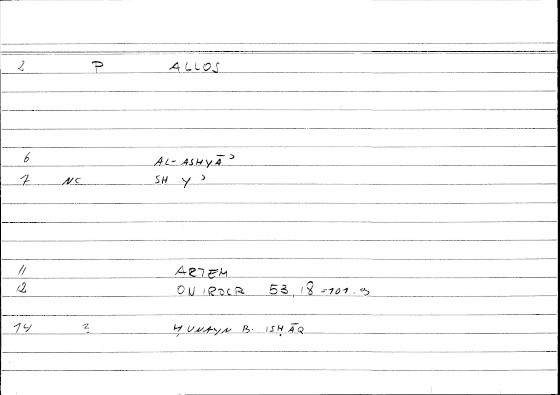 2 P ALLOS
6 AL-ASHYĀʾ
7 NC SH Y ʾ
11 ARTEM
12 OVIRDCR 53,18=101.9
14 ? ḤUNAYN B. ISḤĀQ